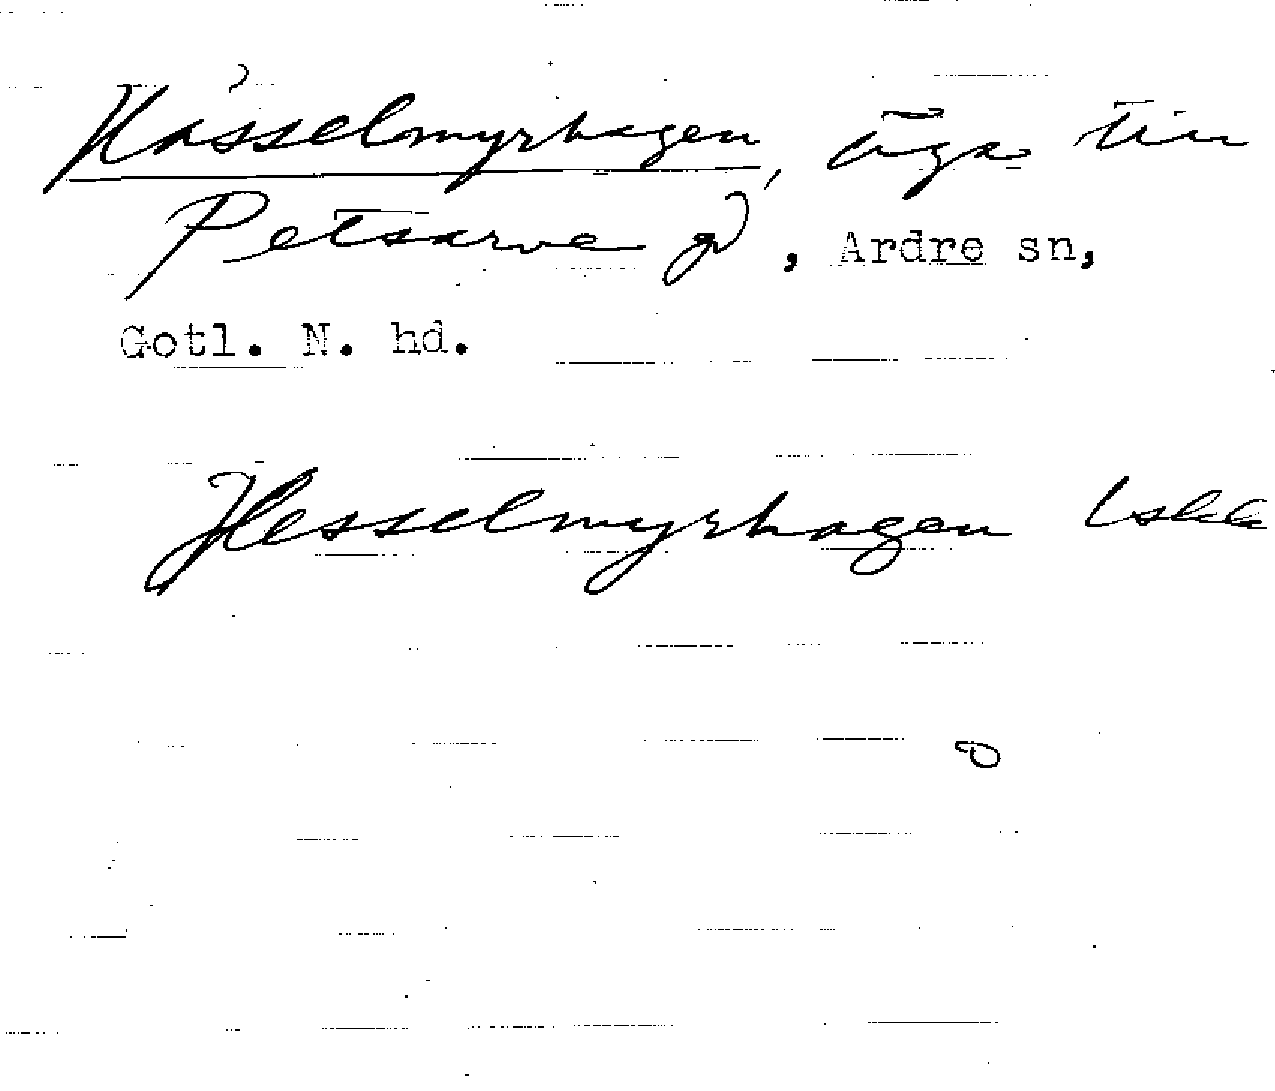 Hässelmyrhagen, äga till
Petsarve gd, Ardre sn,
Gotl. N. hd.
Hesselmyrhagen